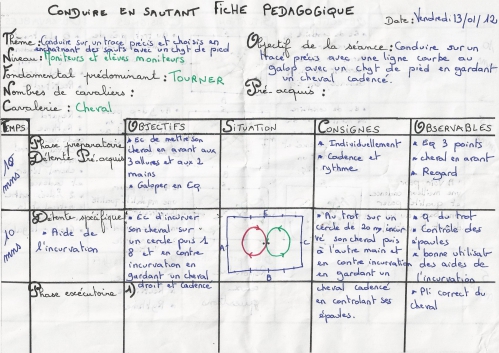 CONDUIRE EN SAUTANT FICHE PEDAGOGIQUE
Date : Vendredi 13/01/12
Thème : Conduire sur un tracé précis et choisis en
enchainant des sauts avec un chgt de pied
Niveau : Moniteurs et élèves moniteurs
Fondamental prédominant : TOURNER
Nombres de cavaliers :
Cavalerie : Cheval
Objectif de la séance : Conduire sur un
tracé précis avec une ligne courbe au
galop avec un chgt de pied en gardant
un cheval cadencé.
Pré-acquis :
TEMPS
OBJECTIFS
SITUATION
CONSIGNES
OBSERVABLES
10
mns
Phase préparatoire
Détente Pré-acquis
• Ec de mettre son
cheval en avant aux
3 allures et aux 2
mains
• Galoper en Eq
• Individuellement
• Cadence et
rythme
• Eq 3 points
• cheval en avant
• Regard
10
mns
Détente spécifique
• Aide de
l'incurvation
• Ec d'incurver
son cheval sur
un cercle puis 1
8 et en contre
incurvation en
gardant un cheval
droit et cadencé
A
E
C
B
• Au trot sur un
cercle de 20 m, incur
vé son cheval puis
à l'autre main et
en contre incurvation
en gardant un
cheval cadencé
en controlant ses
épaules.
• Q du trot
• Contrôle des
épaules
• bonne utilisat°
des aides de
l'incurvation
• Pli correct du
cheval
Phase exécutoire
1)